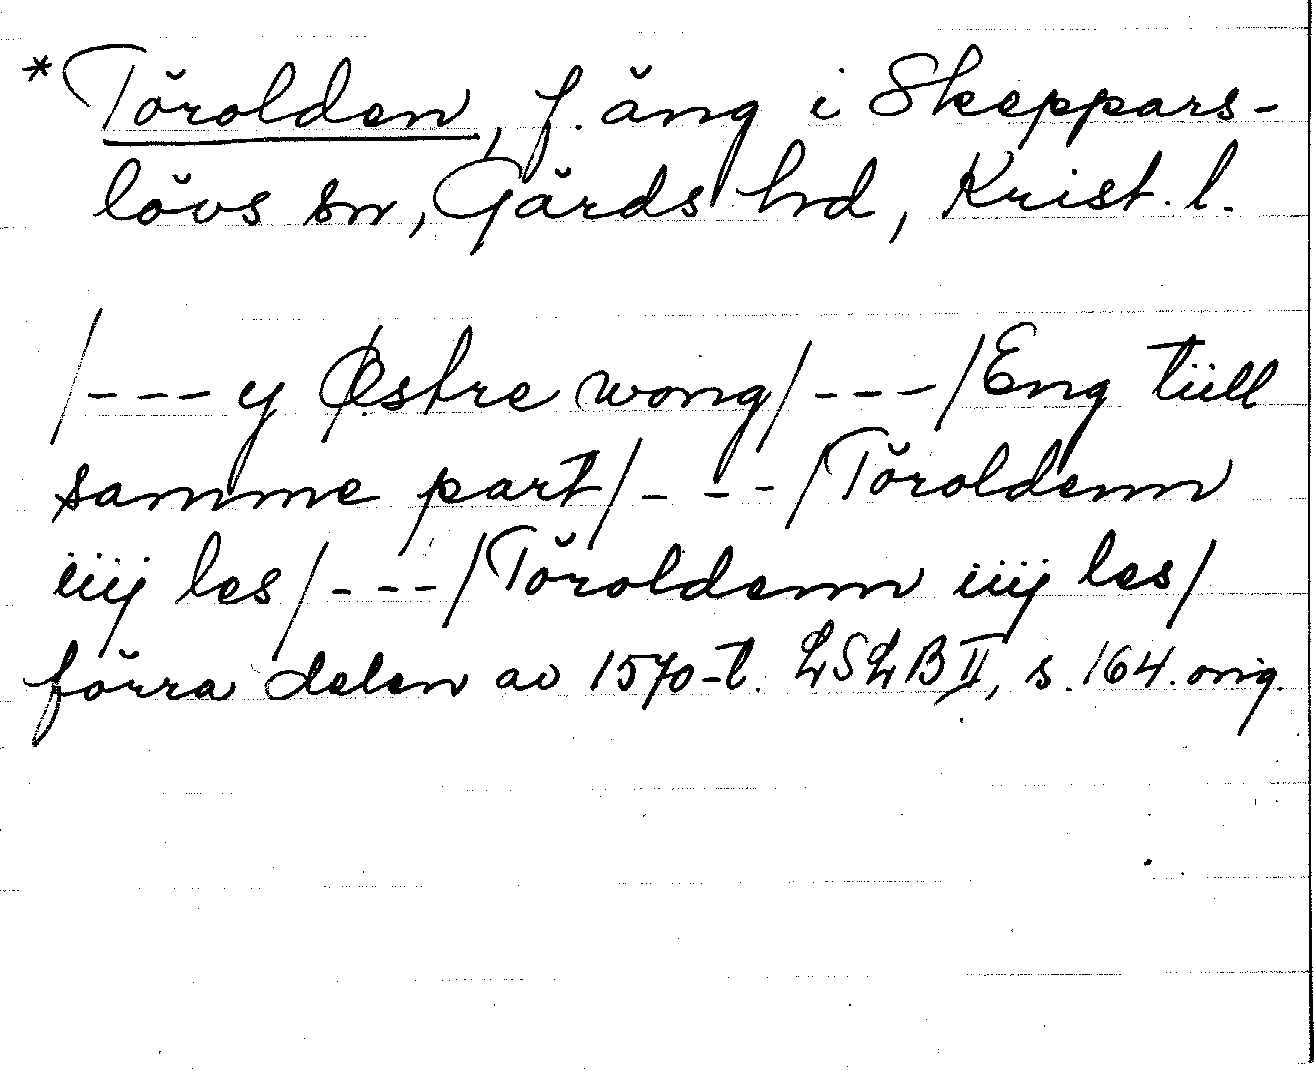 *Törolden, f. äng i Skeppars-
lövs sn, Gärds hd, Krist. l.
/---y Østre wong/---/Eng tiill
samme part/---/Töroldenn
iiij les/---/Töroldenn iiij les/
förra delen av 1570-t. LSLB II, s. 164. orig.